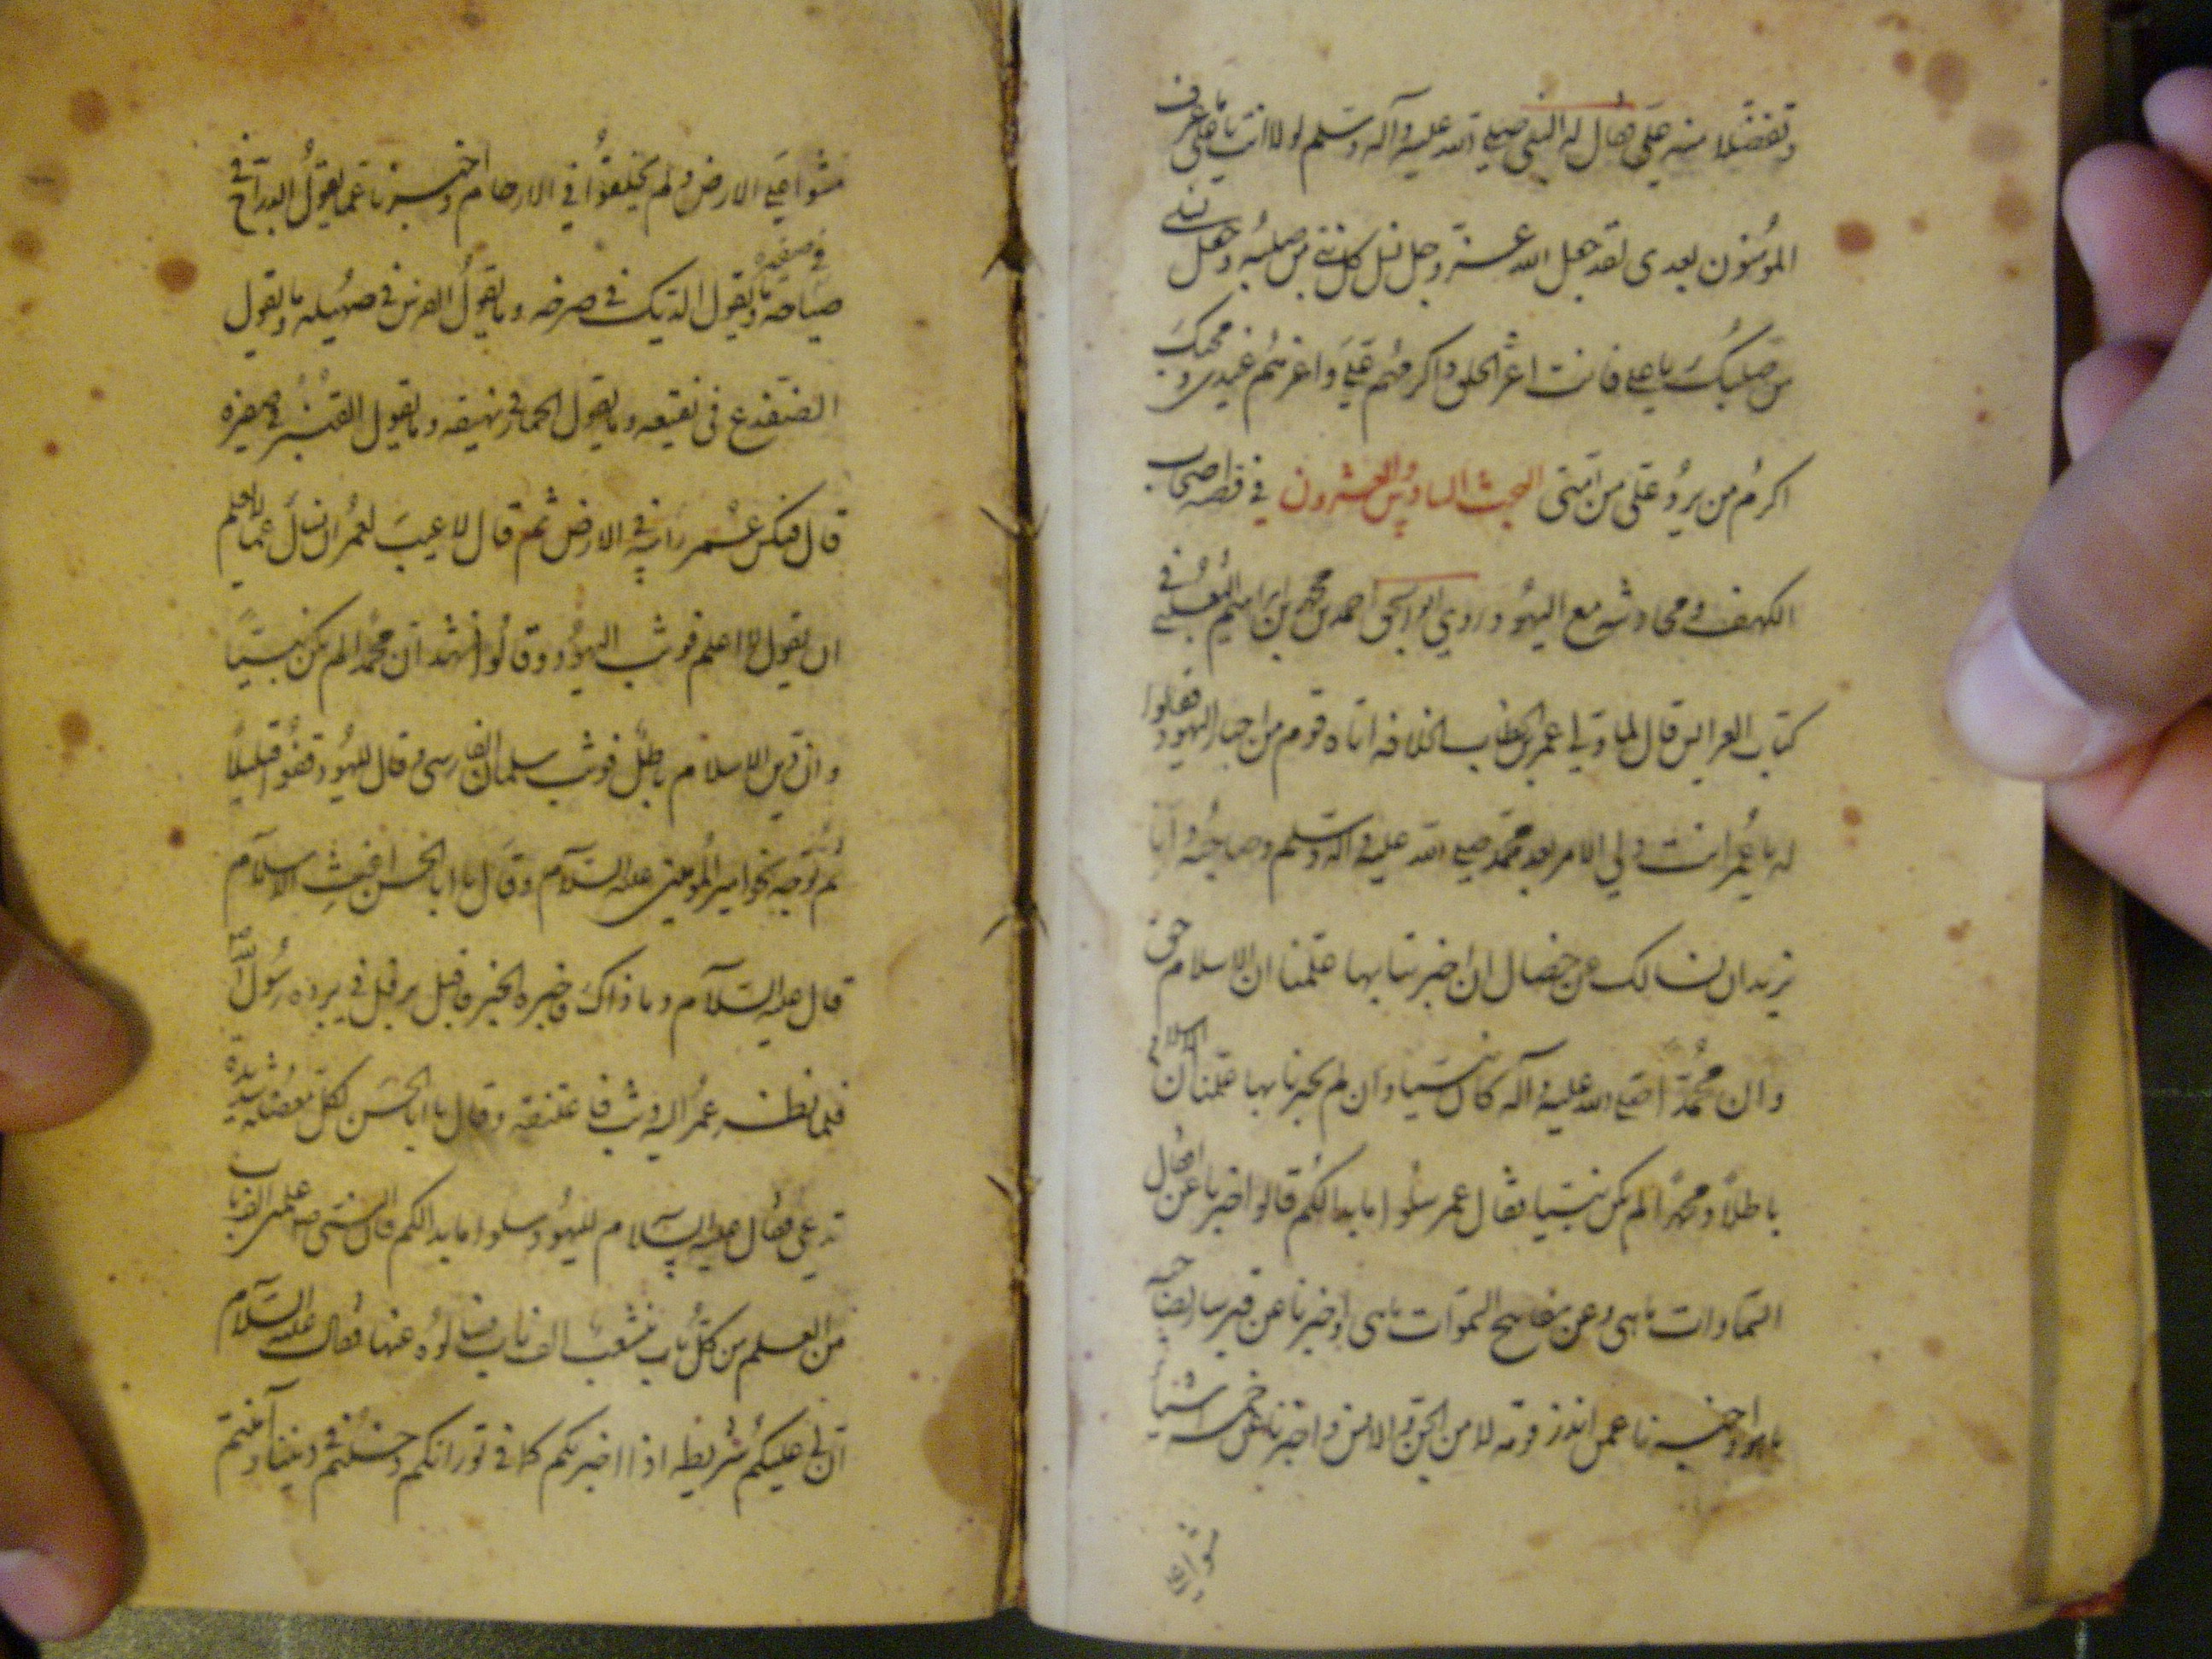 وتفضّلا منه علي فقال له النبي صلى الله عليه وآله وسلم لولا انت يا علي ما عرف
المؤمنون بعدى لقد جعل الله عز وجل نسل كل نبي من صلبه وجعل نسلى
من صلبك يا على فانت اعز الخلق واكرمهم على واعزهم عندى ومحبك
اكرم من يرد على من امتى البحث السادس والعشرون في قصه اصحاب
الكهف ومحادثته مع اليهود روي ابو اسحق احمد بن محمد بن ابراهيم الثعلبي في
كتاب العرايس قال لما ولي عمر بن الخطاب الخلافه اتاه قوم من احبار اليهود فقالوا
له يا عمر انت ولي الامر بعد محمد صلى الله عليه وآله وسلم وصاحبه وانا
نريد ان نسالك عن خصال ان اخبرتنا بها علمنا ان الاسلام حق
وان محمدا صلى الله عليه وآله كان نبيا وان لم تخبرنا بها علمنا ان الاسلام
باطلا ومحمدا لم يكن نبيا فقال عمر سلوا ما بدا لكم قالوا اخبرنا عن اقفال
السماوات ما هى وعن مفاتيح السموات ما هى واخبرنا عن قبر سار بصاحبه
ما هو واخبرنا عمن انذر قومه لا من الجن ولا الانس واخبرنا عن خمسه اشيا
مشوا على الارض ولم يخلقوا في الارحام واخبرنا عما يقول الدراج في
صياحه وما يقول الديك في صرخه وما يقول الفرس في صهيله وما يقول
الضفدع في نقيقه وما يقول الحمار في نهيقه وما يقول القنبر في صفيره
قال فنكس عمر راسه في الارض ثم قال لا عيب لعمر ان سأل عما لا يعلم
ان يقول لا اعلم فوثب اليهود وقالوا نشهد ان محمدا لم يكن نبيّا
وان دين الاسلام باطل فوثب سلمان الفارسى وقال لليهود قفوا قليلا
ثم توجه نحو امير المومنين عليه السلام وقال يا ابا الحسن اغث الاسلام
قال عليه السلام وما ذاك فاخبره الخبر فاقبل يرفل في برده رسول الله
فلما نظر عمر اليه وثب فاعتنقه وقال يا ابا الحسن لكل معضله وشده
تدعى فقال عليه السلام لليهود سلوا ما بدا لكم فان النبي علمنى الف باب
من العلم من كل باب يتشعب الف باب فسالوه عنها فقال عليه السلام
ان لي عليكم شريطه اذا اخبرتكم كما في توراتكم دخلتم في ديننا وآمنتم